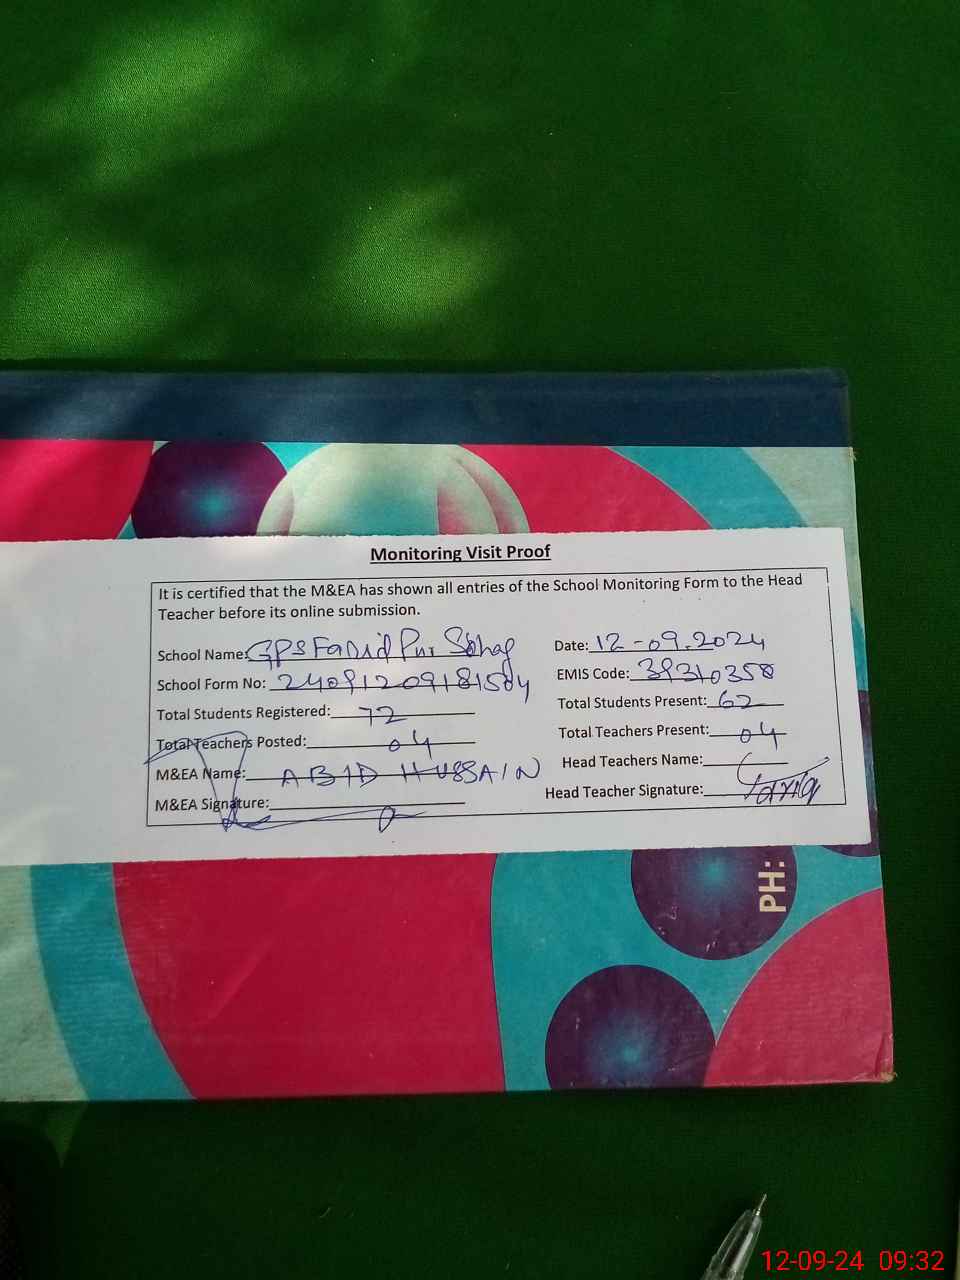 Monitoring Visit Proof
It is certified that the M&EA has shown all entries of the School Monitoring Form to the Head
Teacher before its online submission.
School Name: GPS Farid Pur Sohag Date: 12-09.2024
School Form No: EMIS Code:
Total Students Registered: 72 Total Students Present: 62
Total Teachers Posted: 04 Total Teachers Present: 04
M&EA Name: ABID HUSSAIN Head Teachers Name:
M&EA Signature: Head Teacher Signature: Tariq
PH:
12-09-24 09:32